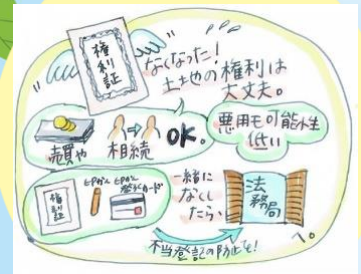 権利証
なくなった!
土地の権利は
大丈夫。
売買や
相続
OK。
悪用も可能性
低い
権利証
印かん
印かん
登录カード
一緒に
なくし
たら、
法務局
へ。
不当登記の防止を!